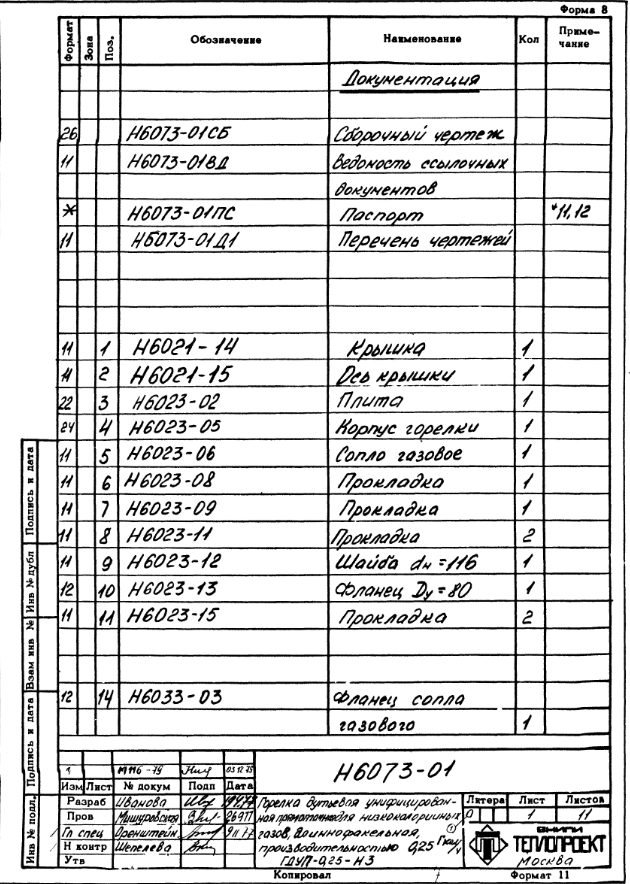 Форма 8
Формат Зона Поз. Обозначение Наименование Кол Приме-
чание
Документация
26 Н6073-01СБ Сборочный чертеж
11 Н6073-01ВД Ведомость ссылочных
документов
* Н6073-01ПС Паспорт *11,12
11 Н6073-01Д1 Перечень чертежей
11 1 Н6021-14 Крышка 1
11 2 Н6021-15 Ось крышки 1
22 3 Н6023-02 Плита 1
24 4 Н6023-05 Корпус горелки 1
11 5 Н6023-06 Сопло газовое 1
11 6 Н6023-08 Прокладка 1
11 7 Н6023-09 Прокладка 1
11 8 Н6023-11 Прокладка 2
11 9 Н6023-12 Шайба dн=116 1
12 10 Н6023-13 Фланец Dу=80 1
11 11 Н6023-15 Прокладка 2
12 14 Н6033-03 Фланец сопла
газового 1
Подпись и дата
Инв № дубл
Взам инв №
Подпись и дата
Инв № подл,
1 ММ16-79 03.12.79
Изм Лист № докум Подп Дата
Н6073-01
Разраб Иванова
Пров Мишуровская 26.9.77
Гл спец Оренштейн 9.11.77
Н контр Шепелева
Утв
Горелка дутьевая унифицирован-
ная для низкокалорийных
газов, длиннофакельная,
производительностью 0,25 Гкал/ч
ГДУП-0,25-Н3
Литера Лист Листов
Р 1 11
ВНИПИ
ТЕПЛОПРОЕКТ
Москва
Копировал Формат 11